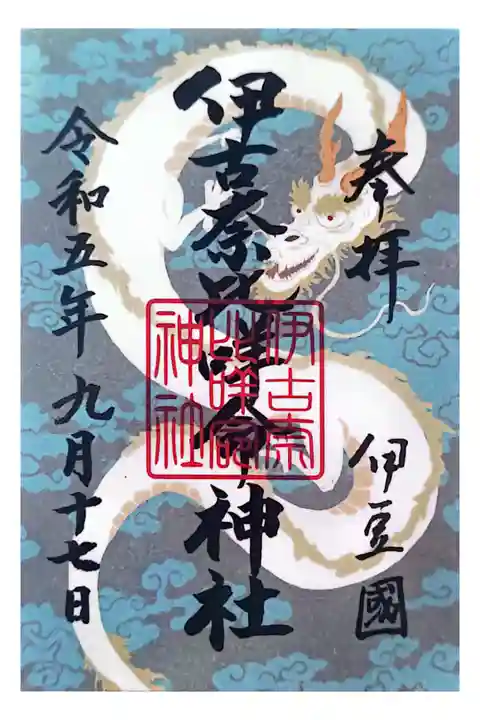 奉拝
伊豆國
伊古奈比咩命神社
伊古奈
比咩命
神社
令和五年九月十七日